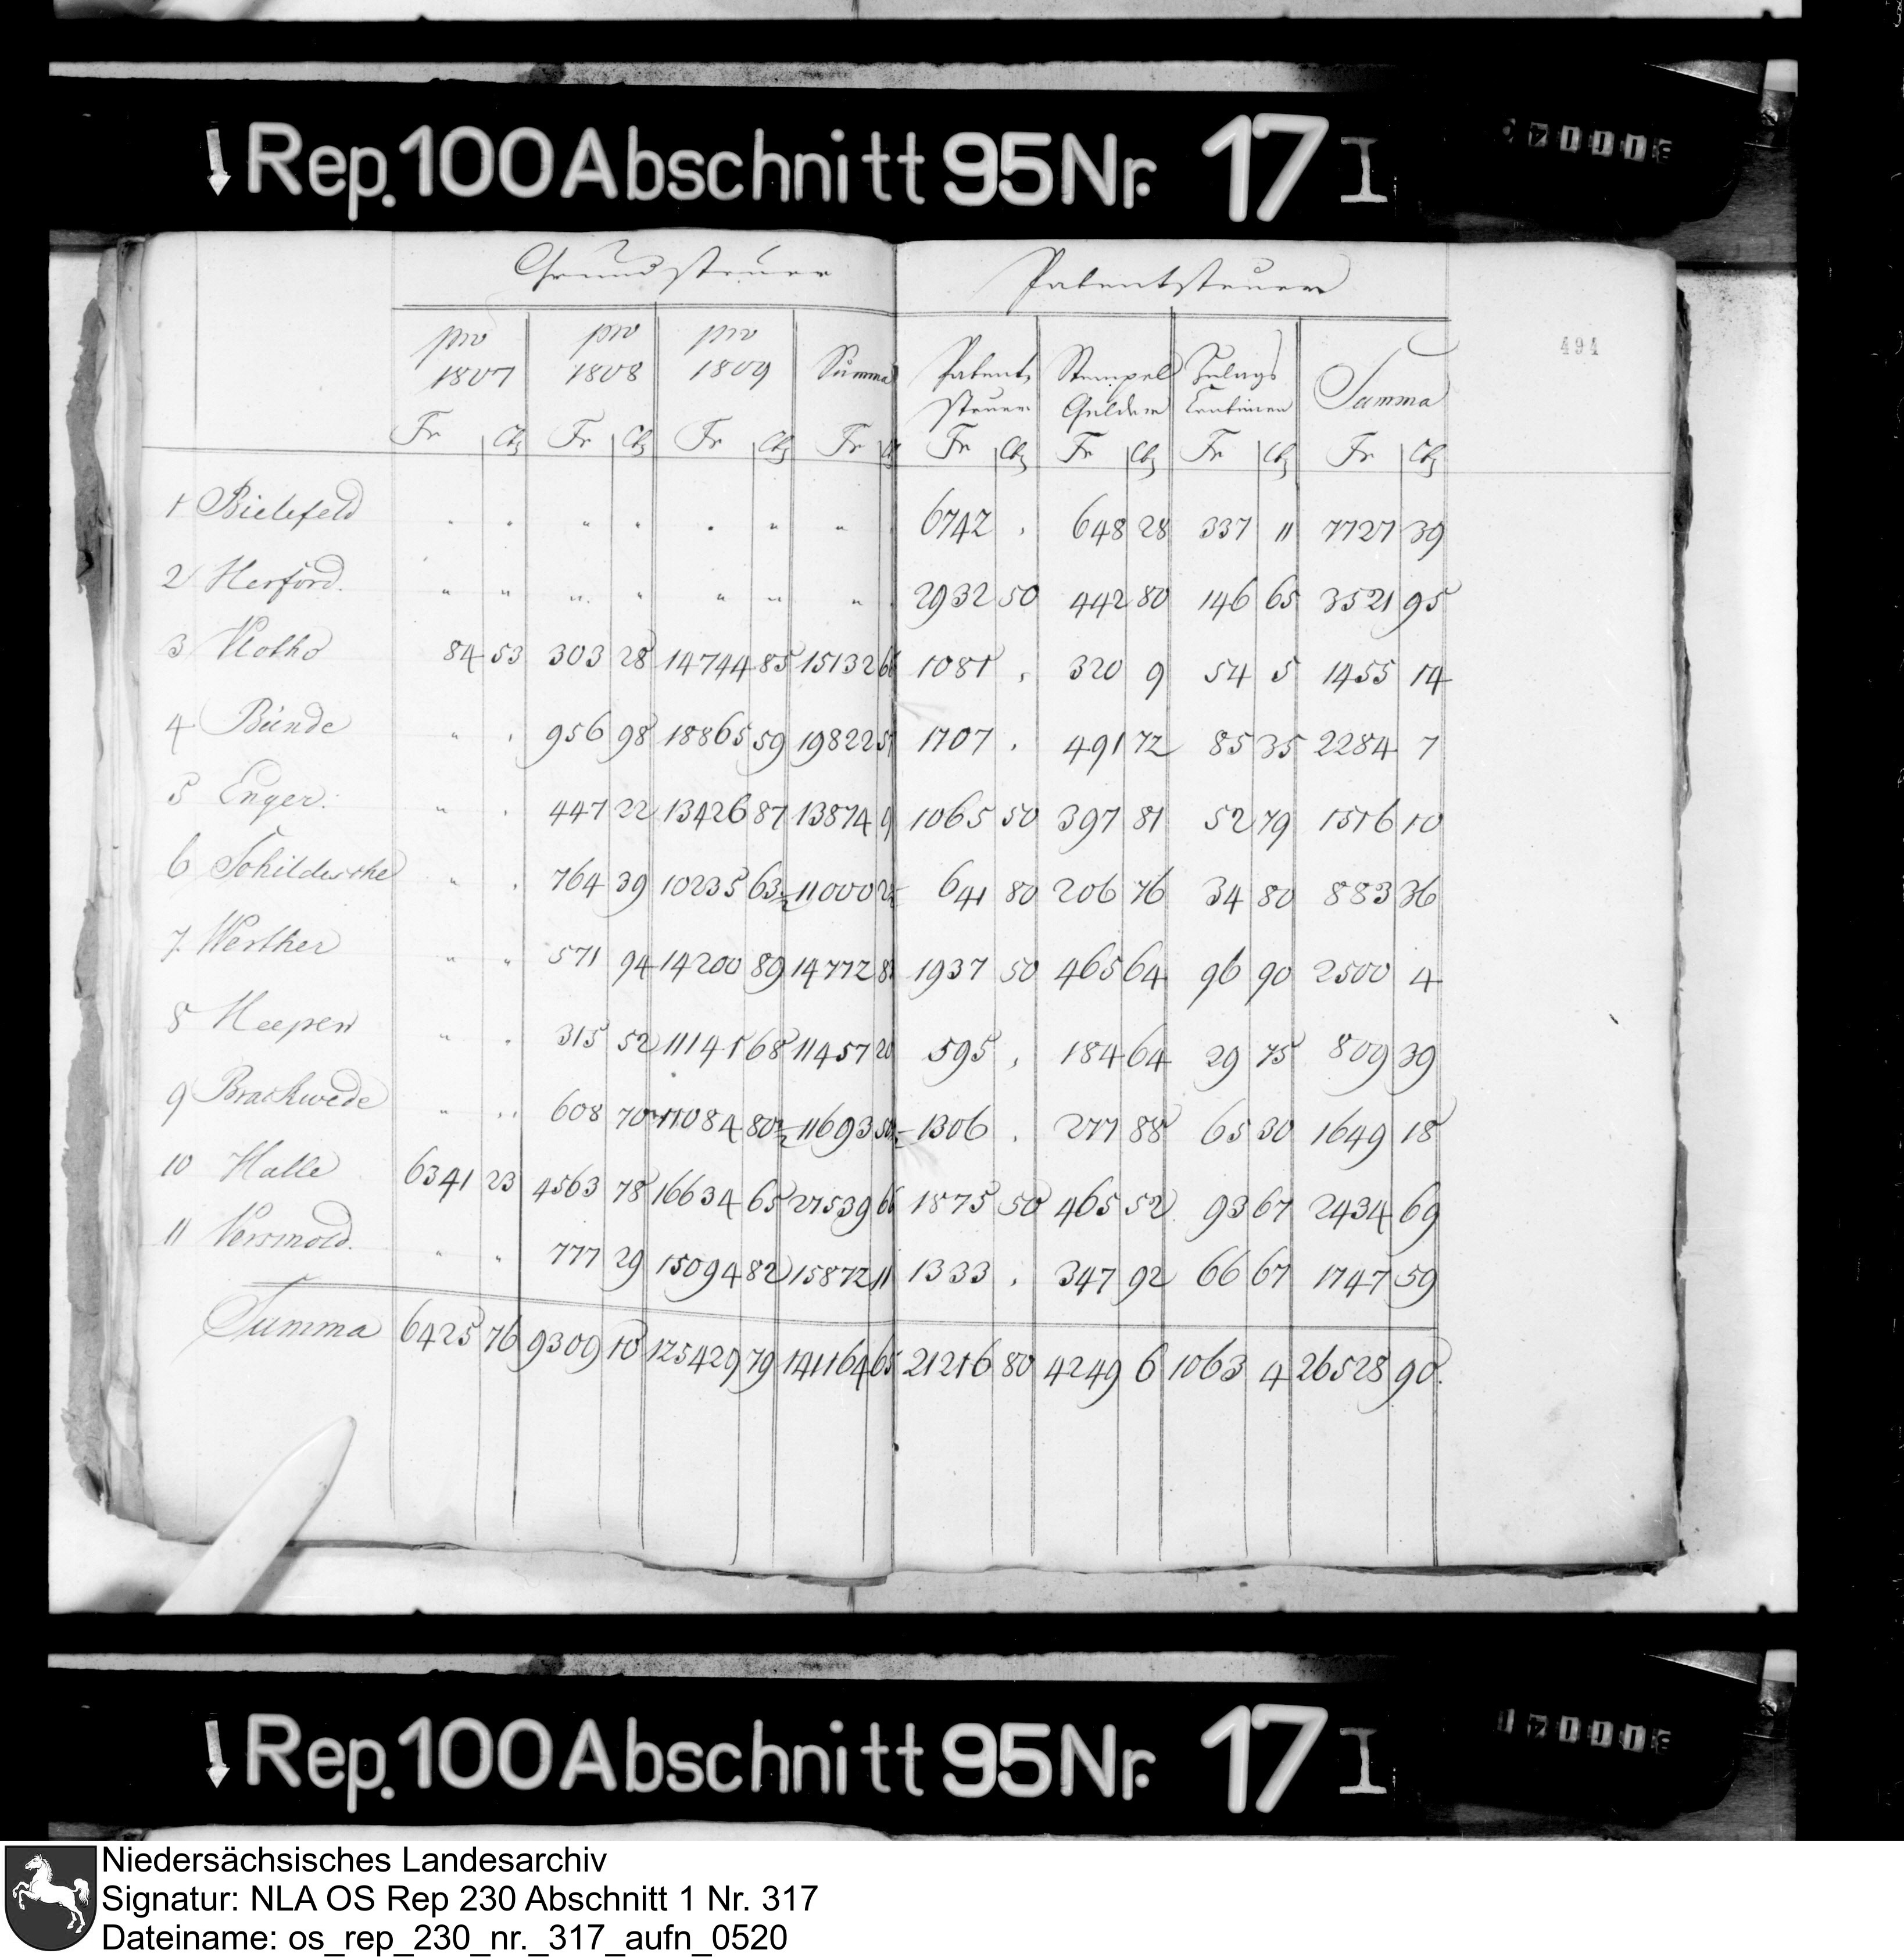 Rep. 100 Abschnitt 95 Nr. 17 I
Grundsteuer Patentsteuer
494
pro 1807 pro 1808 pro 1809 Summa Patent steuer Stempel Gelder Zulags Centimen Summa
Fr Cts Fr Cts Fr Cts Fr Cts Fr Cts Fr Cts Fr Cts
1 Bielefeld " " " " " " " 6742 " 648 28 337 " 7727 39
2 Herford. " " " " " " " 2932 50 442 80 146 65 3521 95
3 Vlotho 84 53 303 28 14744 85 15132 66 1081 " 320 9 54 5 1455 14
4 Bünde " " 956 98 18865 59 19822 57 1707 " 491 72 85 35 2284 7
5 Enger. " " 447 22 13426 87 13874 9 1065 50 397 81 52 79 1516 10
6 Schildesche " " 764 39 10235 63 11000 2 641 80 206 76 34 80 883 36
7. Werther " " 571 94 14200 89 14772 83 1937 50 465 64 96 90 2500 4
8 Heepen " " 315 52 11141 68 11457 20 595 " 184 64 29 75 809 39
9 Brackwede " " 608 70 11084 80 11693 50 1306 " 277 88 65 30 1649 18
10 Halle 6341 23 4563 78 16634 65 27539 66 1875 50 465 52 93 67 2434 69
11 Versmold. " " 777 29 15094 82 15872 11 1333 " 347 92 66 67 1747 59
Summa 6425 76 9309 10 125429 79 141164 65 21216 80 4249 6 1063 4 26528 90.
Rep. 100 Abschnitt 95 Nr. 17 I
Niedersächsisches Landesarchiv
Signatur: NLA OS Rep 230 Abschnitt 1 Nr. 317
Dateiname: os_rep_230_nr._317_aufn_0520